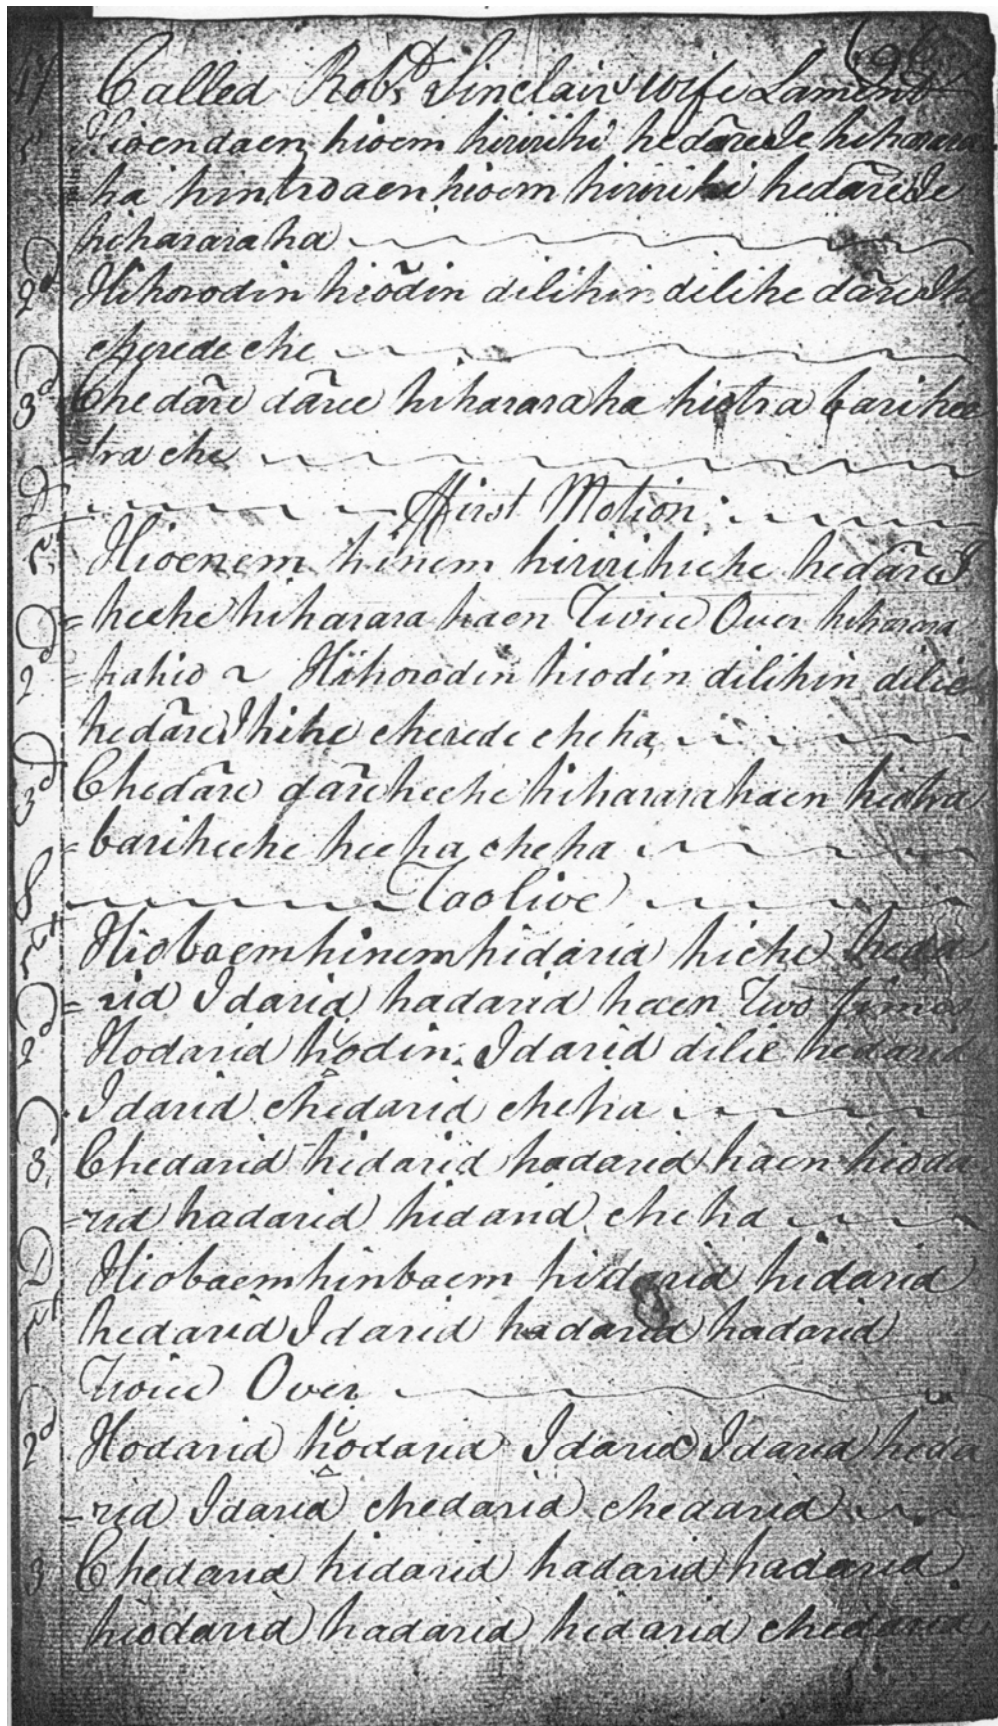 17 Called Robt Sinclair's wife Lament
Hioendaen hioem hiririhi hedāreIe hiharara
ha hintrodaen hioem hiririhi hedāreIe
hihararaha
2d Hihorodin hiōdin dilihin dilihe dāre
cherede che
3d Chedāre dāree hihararaha hiotra barihee
tra che
D First Motion
1st Hioenem hinem hiririhiche hedāreI
= heche hiharara haen Twice Over hiharara
2d = hahio ~ Hihorodin hiodin dilihin dilie
hedāreIhihe cherede cheha
3d Chedāre dāreheche hihararahaen hiotra
= bariheche heeha cheha
S Taolive
1st Hiobaemhinemhidarid hiche heda
= rid Idarid hadarid haen Two times
2d Hodarid hodin Idarid dilie hedarid
Idarid chedarid cheha
3, Chedarid hidarid hadarid haen hioda
= rid hadarid hidarid, cheha
D Hiobaemhinbaem hidarid hidarid
1st hedarid Idarid hadarid hadarid
Twice Over
2d Hodarid hodarid Idarid Idarid heda
- rid Idarid chedarid chedarid
3 Chedarid hidarid hadarid hadarid
hiodarid hadarid hidarid chedarid